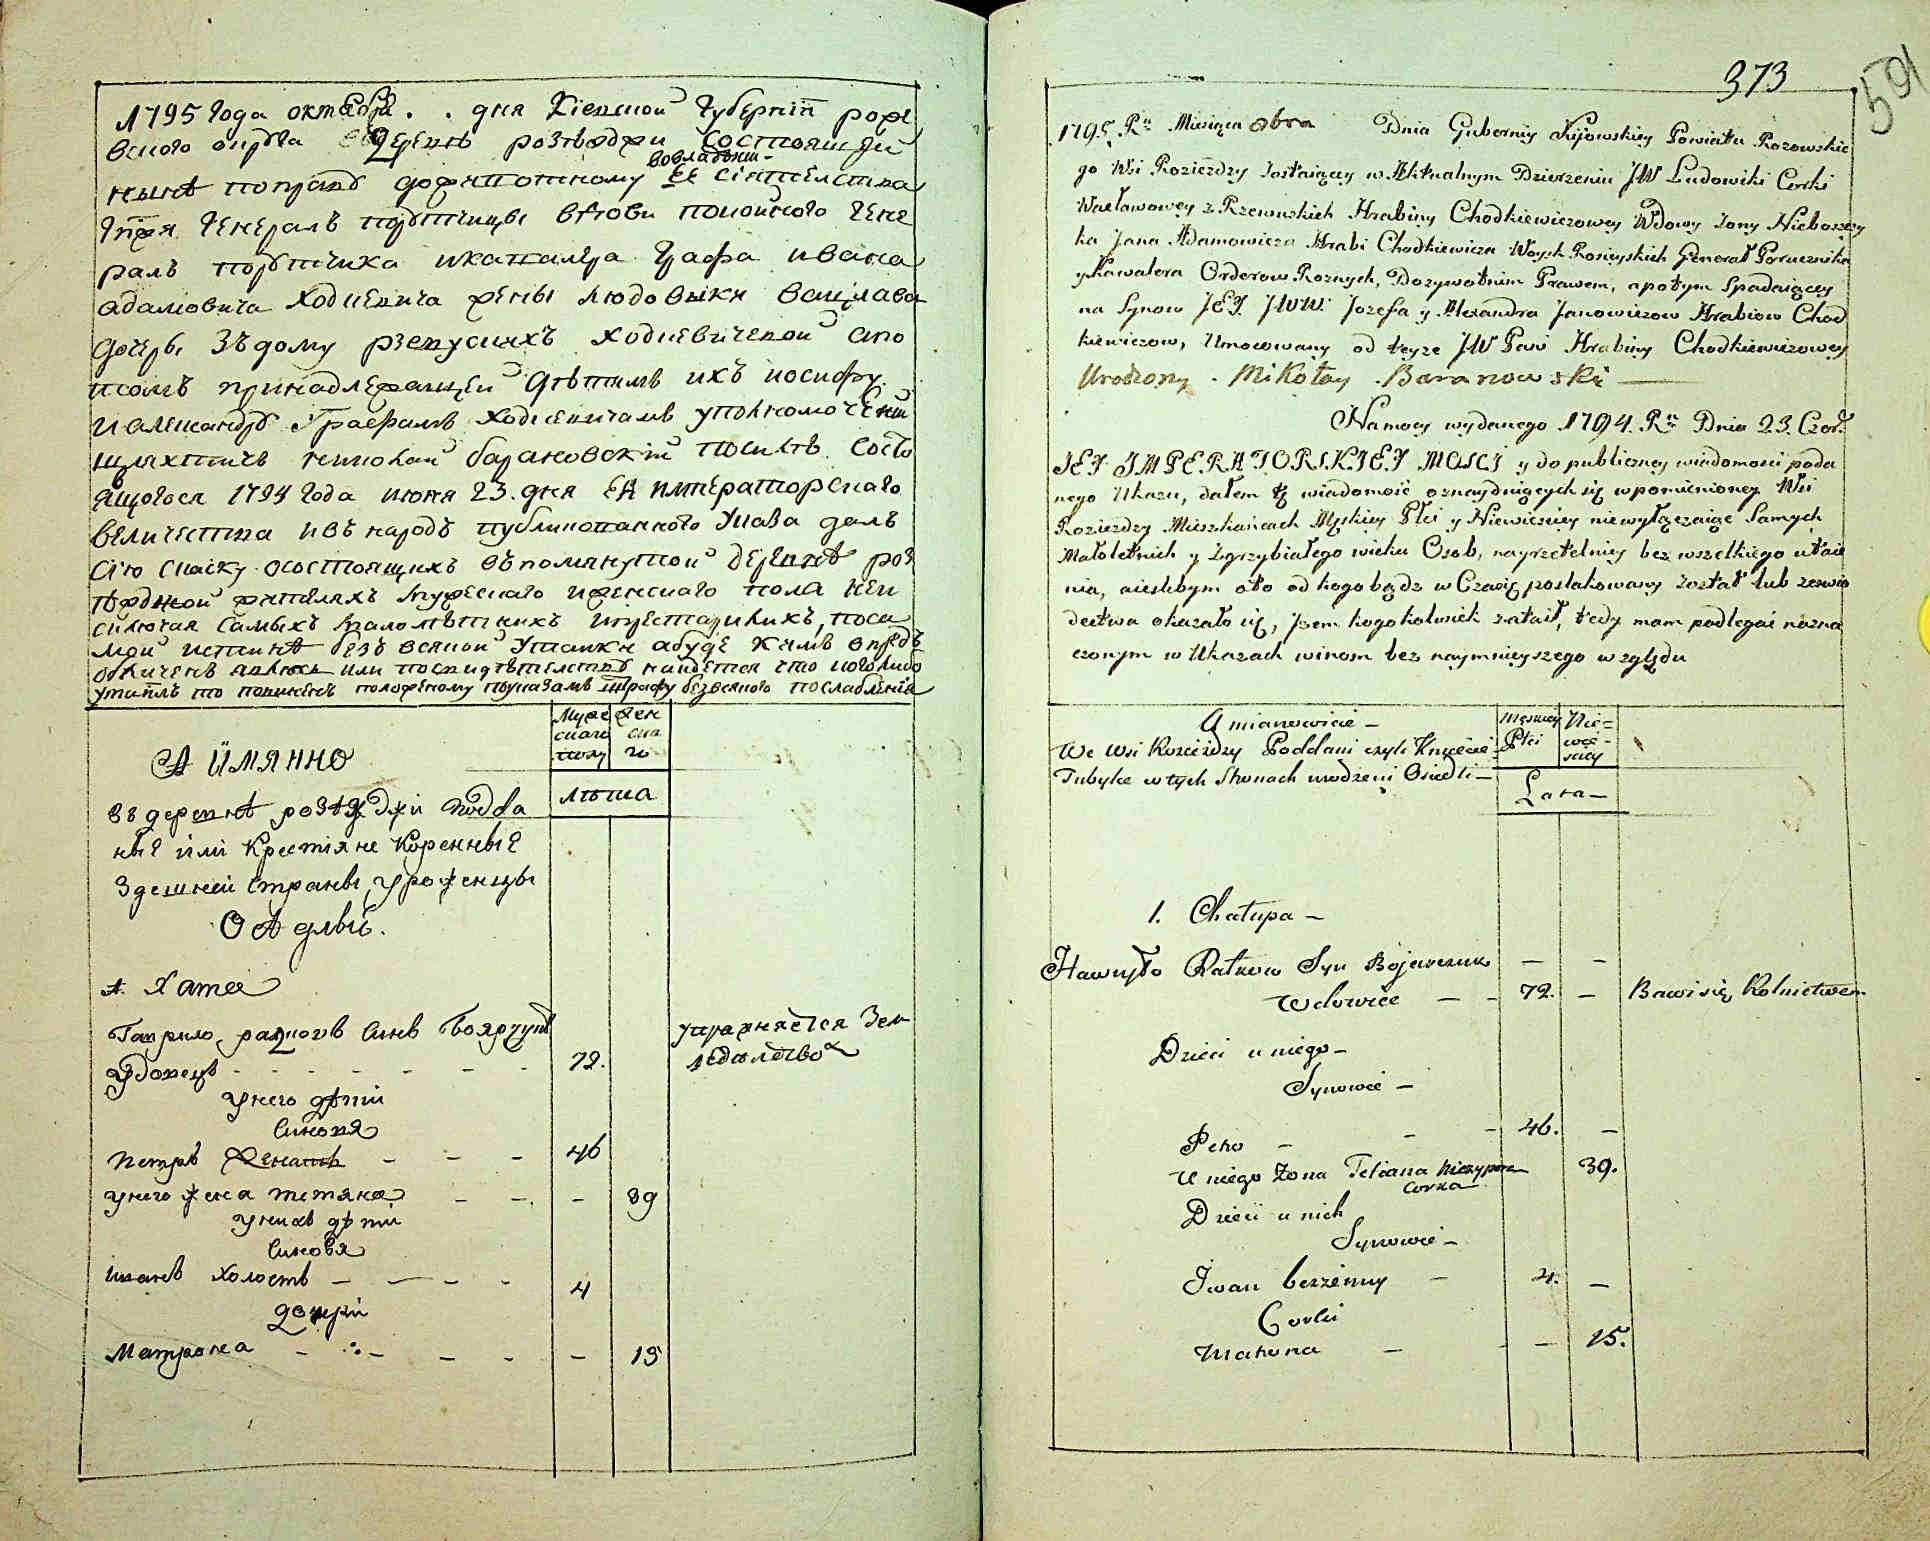 1795 Года октября . . дня Кіевской Губерніи роже
вского округа въ деревнѣ розъѣзджи состоящей
вовладѣніи
нынѣ поправу доживотному Ея сіятелства
Гпжи Генералъ порутчицы вдови покойного Гене
ралъ порутчика икавалера Графа ивана
адамовича Ходкевича жены людовыки вацлава
дочери зъдому ржевускихъ Ходкевичевой апо
томъ принадлежащей дѣтямъ ихъ иосифу
иалександру Графамъ Ходкевичамъ уполномоченн
шляхтичъ николай барановскій послѣ состо
ящогося 1794 года июня 23. дня Ея императорского
величества ивъ народъ публикованного Указа далъ
сію скаску осостоящихъ въпомянутой деревнѣ роз
ѣзджой жителяхъ мужеского иженского пола неи
сключая самыхъ малолѣтнихъ ипрестарилихъ, поса
мой истиннѣ безъ всякой утайки абуде кѣмъ впредъ
обличенъ явлюсь или посвидѣтелству найдется что кого либо
утаилъ то повиненъ положеному поуказамъ штрафу безвсякого послабленія
А ИМЯННО
Муже
ского
полу
жен
ска
го
лѣта
въ деревнѣ розѣзджи подда
ные или Крестіяне Коренные
Здешней страны уроженцы
ОСѢдлые.
1. Хата
Гаврило рацковъ синъ Боярчукъ
удовецъ - - - - - - - 72.
упражняется Зем
леделство
унего дѣти
синовя
Петръ женатъ - - - 46
унего жена тетяна - - - 39
унихъ дѣти
синовя
иванъ Холостъ - - - - 4
дочери
Матрона - - - - - 15
373
591
1795. Rn Miesiąca 8bra Dnia Gubernij Kijowskiey Powiatu Rozowskie
go Wsi Rozieżdzy Zostaiącey w Aktualnym Dzierzeniu JW Ludowiki Corki
Wacławowey z Rzewuskich Hrabiny Chodkiewiczowey Wdowy Zony Nieboszczy
ka Jana Adamowicza Hrabi Chodkiewicza Woysk Rosiyskich Generał Porucznika
y Kawalera Orderow Roznych, Dozywotnim Prawem, apotym Spadaiącey
na Synow JEY JWW. Jozefa y Alexandra Janowiczow Hrabiow Chod
kiewiczow, Umocowany od teyze JW Pani Hrabiny Chodkiewiczowey
Urodzony. Mikołay. Baranowski
Namocy wydanego 1794. Rn Dnia 23. Czer.
JEY IMPERATORSKIEY MOSCI y do publiczney wiadomosci poda
nego Ukazu, dałem tę wiadomość oznayduiących się wpomienioney Wsi
Rozieżdzy Mieszkańcach Męskiey Płci y Niewiesciey niewyłączaiąc Samych
Małoletnich y Zgrzybiałego wieku Osob, nayrzetelniey bez wszelkiego utaie
nia, aieslibym oto od kogo bądz w Czasię poszlakowany został lub zeswia
dectwa okazało się, żem kogokolwiek zataił, tedy mam podlegać nazna
czonym w Ukazach winom bez naymnieyszego względu
A mianowicie –
We Wsi Rozieżdzy Poddani czyli Kmiecie
Tubylce wtych Stronach urodzeni Osiedli –
Męskiey
Płci
Nie=
wie=
sciey
Lata –
1. Chałupa –
Hawryło Rackow Syn Bojarczuk — —
Wdowiec — - 72. – Bawi się Rolnictwem
Dzieci u niego –
Synowie –
Petro - - - 46. –
U niego Zona Teciana Niczypora 39.
Corka
Dzieci u nich
Synowie –
Iwan bezżenny – 4. –
Corki
Matrona – - – 15.